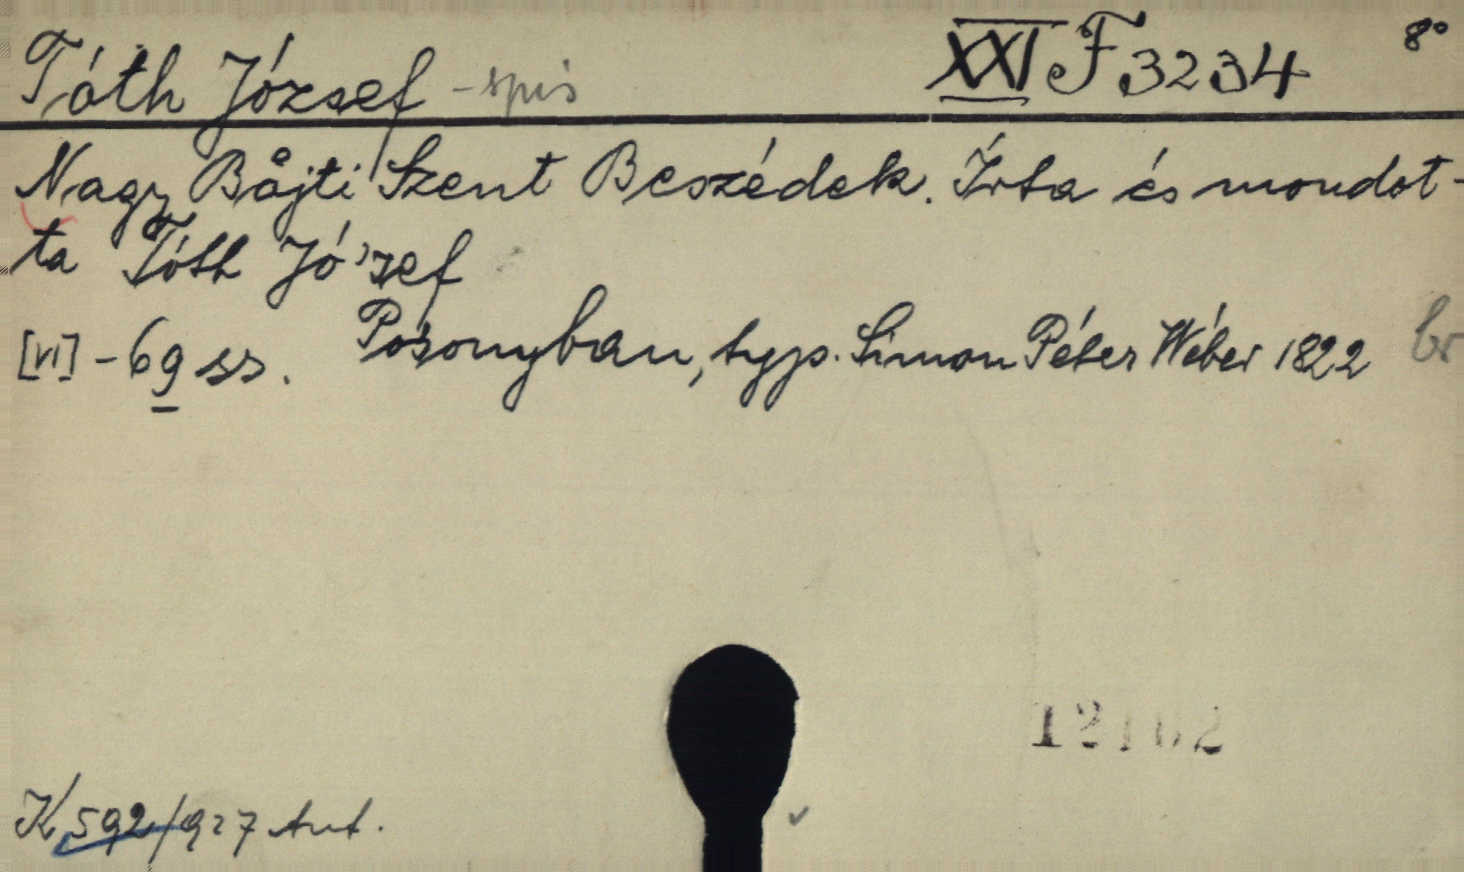 Tóth József - spis XXI F 3234 8°
Nagy Bőjti Szent Beszédek. Írta és mondot-
ta Tóth Jó'sef
[VI] - 69 ss. Posonyban, typ. Simon Péter Wéber 1822 br
12162
K 592/927 Ant.